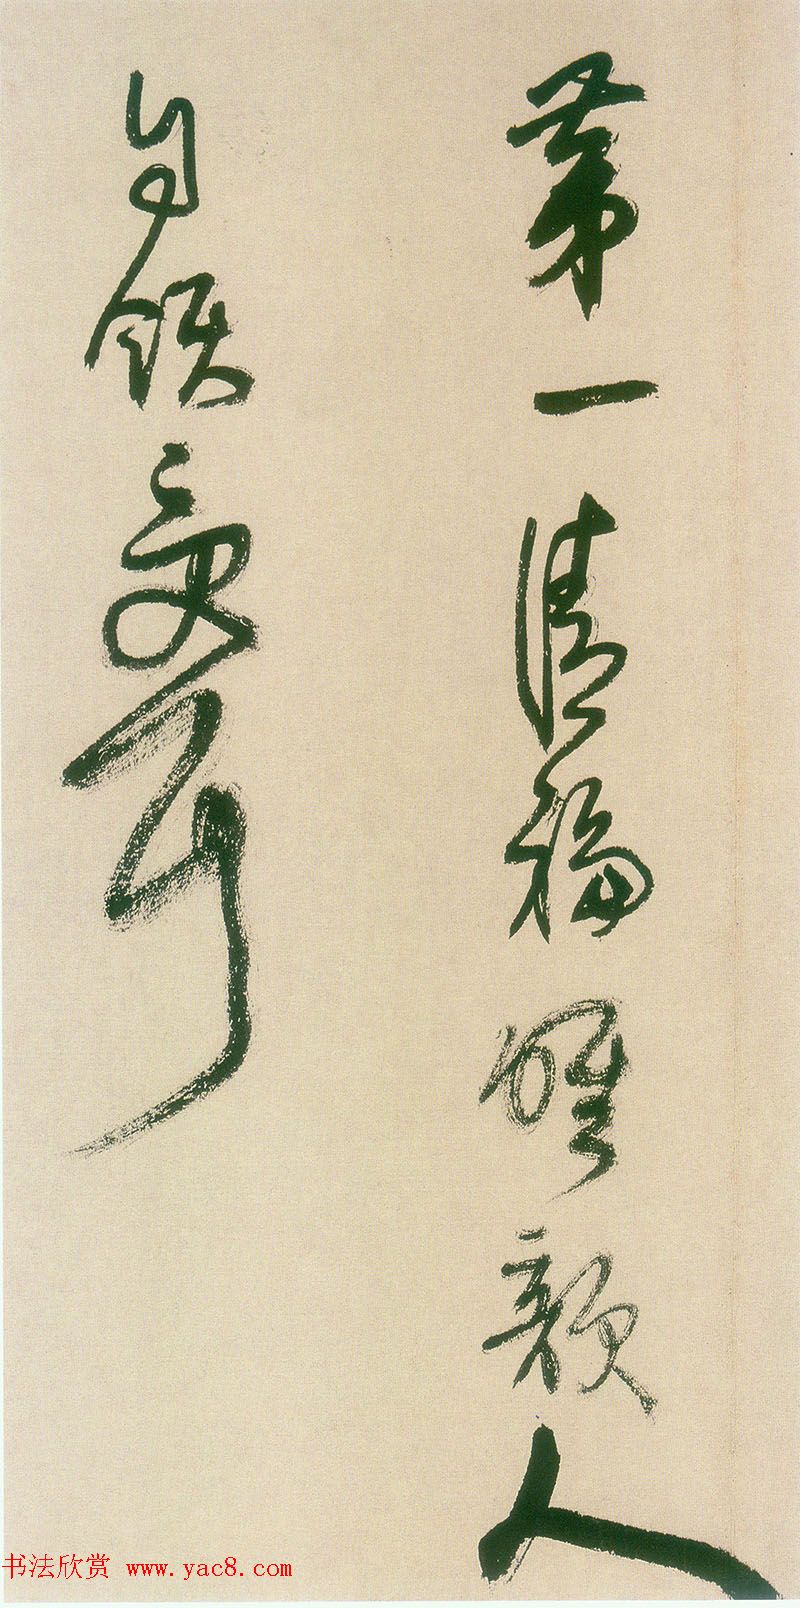 第一清福韻人
自領受耳
书法欣赏 www.yac8.com